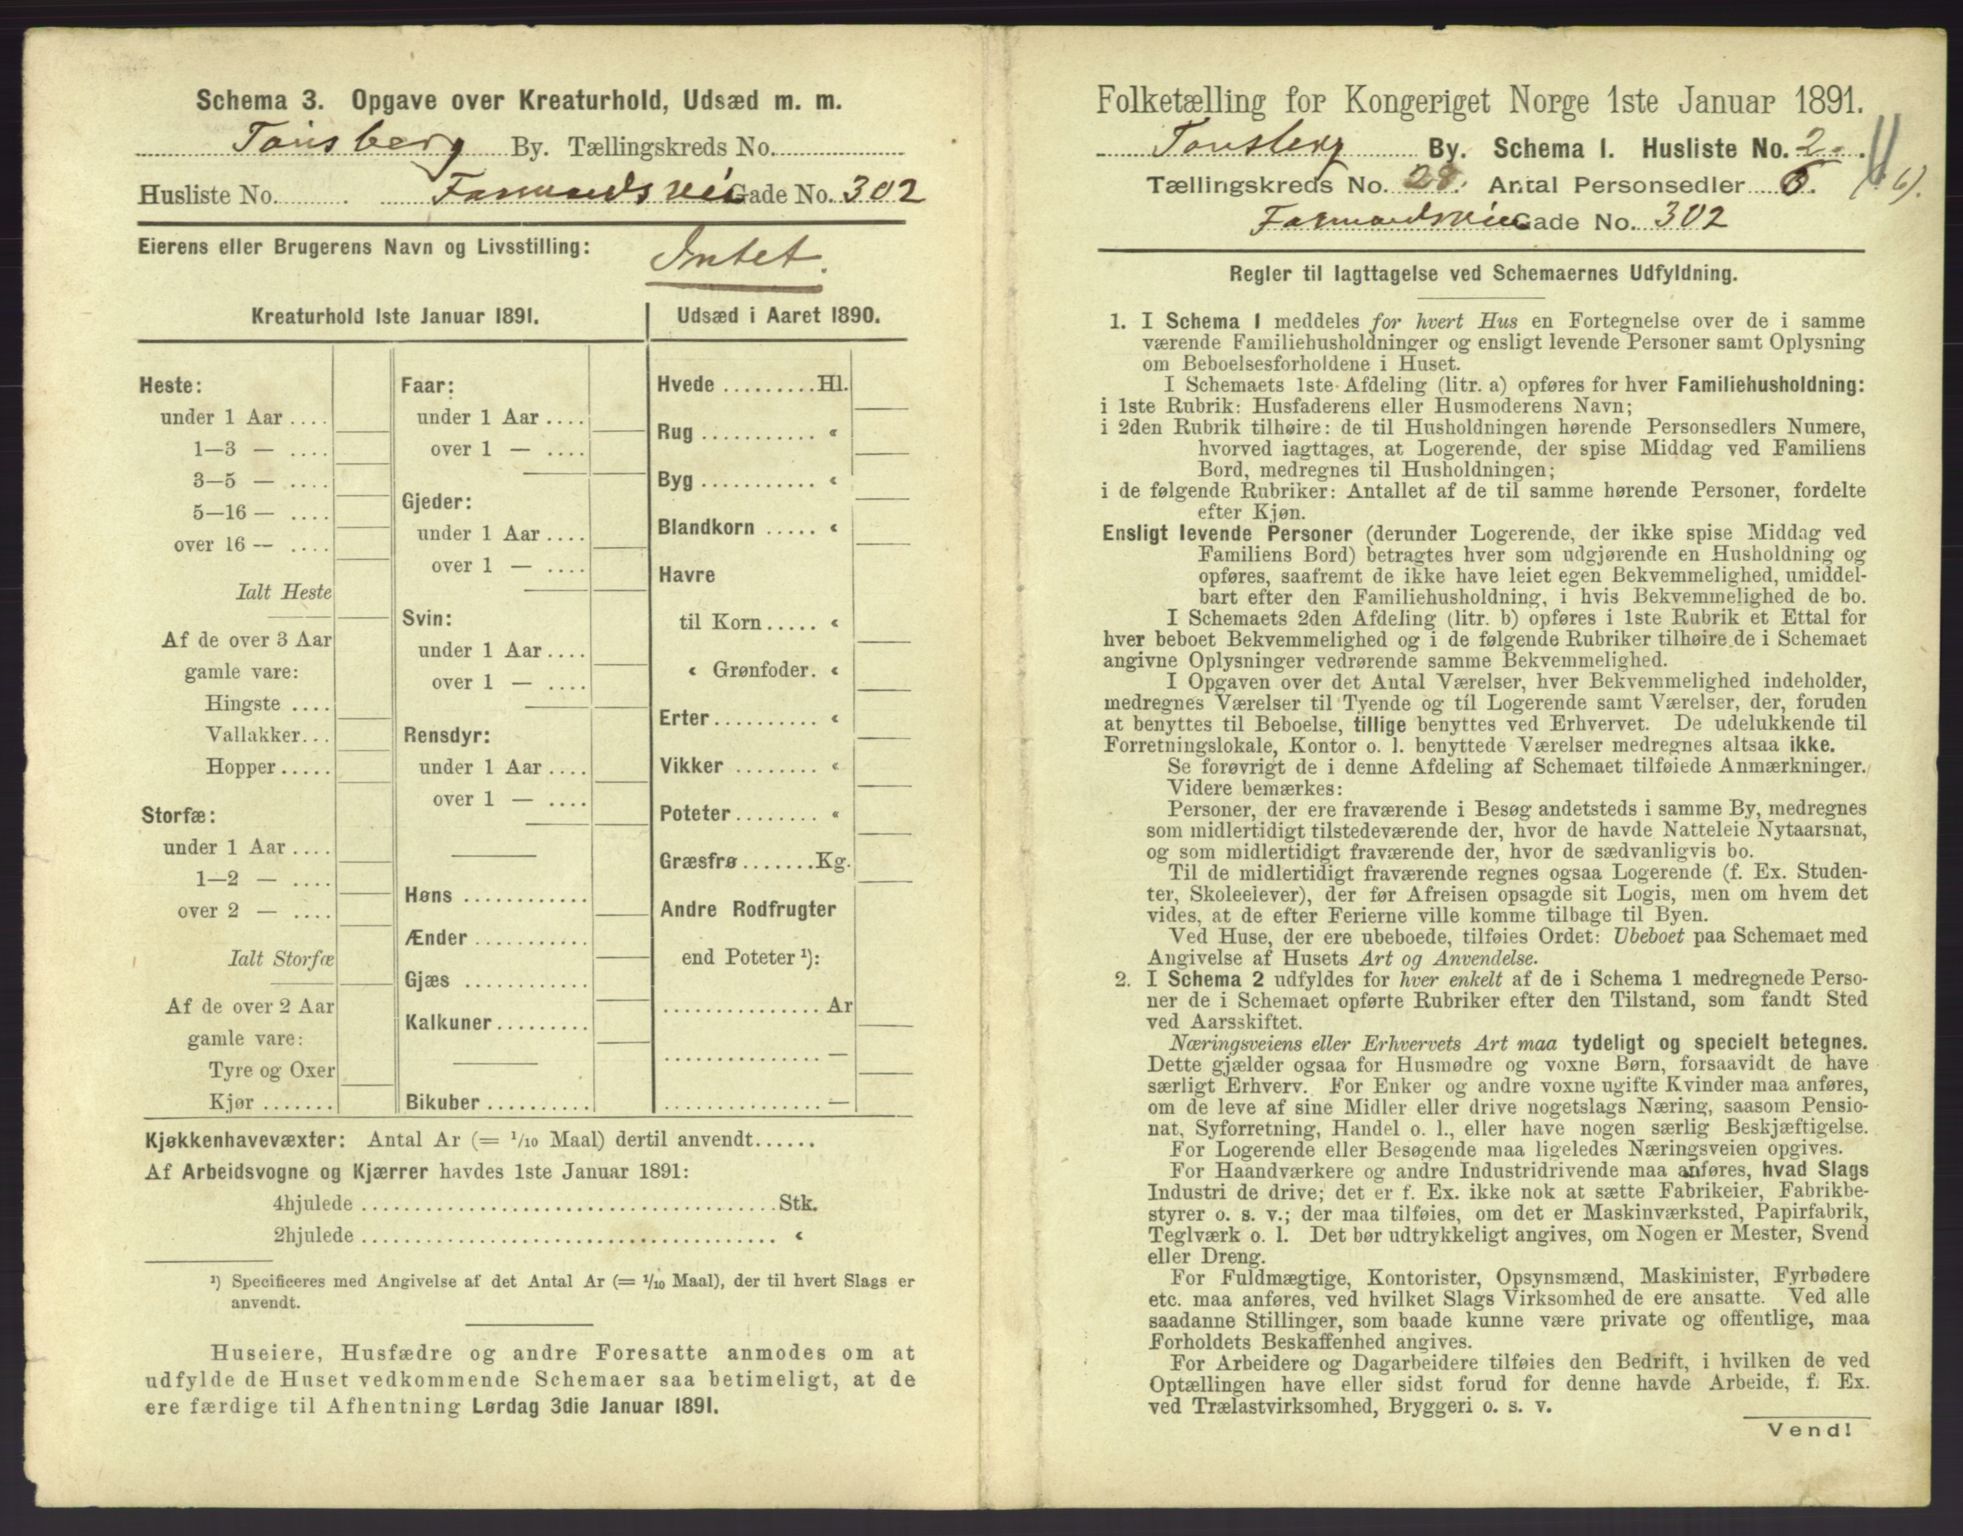 Schema 3. Opgave over Kreaturhold, Udsæd m. m.
Tønsberg By. Tællingskreds No.
Husliste No. Farmandsvei Gade No. 302
Eierens eller Brugerens Navn og Livsstilling: Intet.
Kreaturhold 1ste Januar 1891.
Heste:
under 1 Aar ....
1—3 — ....
3—5 — ....
5—16 — ....
over 16 — ....
Ialt Heste
Af de over 3 Aar
gamle vare:
Hingste ....
Vallakker...
Hopper.....
Storfæ:
under 1 Aar ....
1—2 — ....
over 2 — ....
Ialt Storfæ
Af de over 2 Aar
gamle vare:
Tyre og Oxer
Kjør .......
Faar:
under 1 Aar ....
over 1 — ....
Gjeder:
under 1 Aar ....
over 1 — ....
Svin:
under 1 Aar ....
over 1 — ....
Rensdyr:
under 1 Aar ....
over 1 — ....
Høns ............
Ænder ...........
Gjæs ............
Kalkuner.........
Bikuber..........
Udsæd i Aaret 1890.
Hvede .........Hl.
Rug ........... «
Byg ........... «
Blandkorn ..... «
Havre
til Korn ..... «
« Grønfoder. «
Erter.......... «
Vikker ........ «
Poteter........ «
Græsfrø .......Kg.
Andre Rodfrugter
end Poteter ¹):
...............Ar
............... —
............... —
Kjøkkenhavevæxter: Antal Ar (= 1/10 Maal) dertil anvendt......
Af Arbeidsvogne og Kjærrer havdes 1ste Januar 1891:
4hjulede ......................................Stk.
2hjulede ...................................... «
¹) Specificeres med Angivelse af det Antal Ar (= 1/10 Maal), der til hvert Slags er
anvendt.
Huseiere, Husfædre og andre Foresatte anmodes om at
udfylde de Huset vedkommende Schemaer saa betimeligt, at de
ere færdige til Afhentning Lørdag 3die Januar 1891.
Folketælling for Kongeriget Norge 1ste Januar 1891.
Tønsberg By. Schema 1. Husliste No. 2.
Tællingskreds No. 28. Antal Personsedler 6. (6).
Farmandsveien Gade No. 302
Regler til Iagttagelse ved Schemaernes Udfyldning.
1. I Schema 1 meddeles for hvert Hus en Fortegnelse over de i samme
værende Familiehusholdninger og ensligt levende Personer samt Oplysning
om Beboelsesforholdene i Huset.
I Schemaets 1ste Afdeling (litr. a) opføres for hver Familiehusholdning:
i 1ste Rubrik: Husfaderens eller Husmoderens Navn;
i 2den Rubrik tilhøire: de til Husholdningen hørende Personsedlers Numere,
hvorved iagttages, at Logerende, der spise Middag ved Familiens
Bord, medregnes til Husholdningen;
i de følgende Rubriker: Antallet af de til samme hørende Personer, fordelte
efter Kjøn.
Ensligt levende Personer (derunder Logerende, der ikke spise Middag ved
Familiens Bord) betragtes hver som udgjørende en Husholdning og
opføres, saafremt de ikke have leiet egen Bekvemmelighed, umiddel-
bart efter den Familiehusholdning, i hvis Bekvemmelighed de bo.
I Schemaets 2den Afdeling (litr. b) opføres i 1ste Rubrik et Ettal for
hver beboet Bekvemmelighed og i de følgende Rubriker tilhøire de i Schemaet
angivne Oplysninger vedrørende samme Bekvemmelighed.
I Opgaven over det Antal Værelser, hver Bekvemmelighed indeholder,
medregnes Værelser til Tyende og til Logerende samt Værelser, der, foruden
at benyttes til Beboelse, tillige benyttes ved Erhvervet. De udelukkende til
Forretningslokale, Kontor o. l. benyttede Værelser medregnes altsaa ikke.
Se forøvrigt de i denne Afdeling af Schemaet tilføiede Anmærkninger.
Videre bemærkes:
Personer, der ere fraværende i Besøg andetsteds i samme By, medregnes
som midlertidigt tilstedeværende der, hvor de havde Natteleie Nytaarsnat,
og som midlertidigt fraværende der, hvor de sædvanligvis bo.
Til de midlertidigt fraværende regnes ogsaa Logerende (f. Ex. Studen-
ter, Skoleelever), der før Afreisen opsagde sit Logis, men om hvem det
vides, at de efter Ferierne ville komme tilbage til Byen.
Ved Huse, der ere ubeboede, tilføies Ordet: Ubeboet paa Schemaet med
Angivelse af Husets Art og Anvendelse.
2. I Schema 2 udfyldes for hver enkelt af de i Schema 1 medregnede Perso-
ner de i Schemaet opførte Rubriker efter den Tilstand, som fandt Sted
ved Aarsskiftet.
Næringsveiens eller Erhvervets Art maa tydeligt og specielt betegnes.
Dette gjælder ogsaa for Husmødre og voxne Børn, forsaavidt de have
særligt Erhverv. For Enker og andre voxne ugifte Kvinder maa anføres,
om de leve af sine Midler eller drive nogetslags Næring, saasom Pensio-
nat, Syforretning, Handel o. l., eller have nogen særlig Beskjæftigelse.
For Logerende eller Besøgende maa ligeledes Næringsveien opgives.
For Haandværkere og andre Industridrivende maa anføres, hvad Slags
Industri de drive; det er f. Ex. ikke nok at sætte Fabrikeier, Fabrikbe-
styrer o. s. v.; der maa tilføies, om det er Maskinværksted, Papirfabrik,
Teglværk o. l. Det bør udtrykkeligt angives, om Nogen er Mester, Svend
eller Dreng.
For Fuldmægtige, Kontorister, Opsynsmænd, Maskinister, Fyrbødere
etc. maa anføres, ved hvilket Slags Virksomhed de ere ansatte. Ved alle
saadanne Stillinger, som baade kunne være private og offentlige, maa
Forholdets Beskaffenhed angives.
For Arbeidere og Dagarbeidere tilføies den Bedrift, i hvilken de ved
Optællingen have eller sidst forud for denne havde Arbeide, f. Ex.
ved Trælastvirksomhed, Bryggeri o. s. v.
Vend!